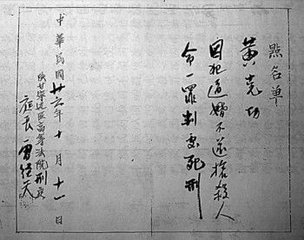 點名单
黄克功
因犯逼婚不遂槍殺人
命一罪判處死刑
中華民國廿六年十月十一日
陝甘寧边區高等法院刑庭
庭長 雷经天